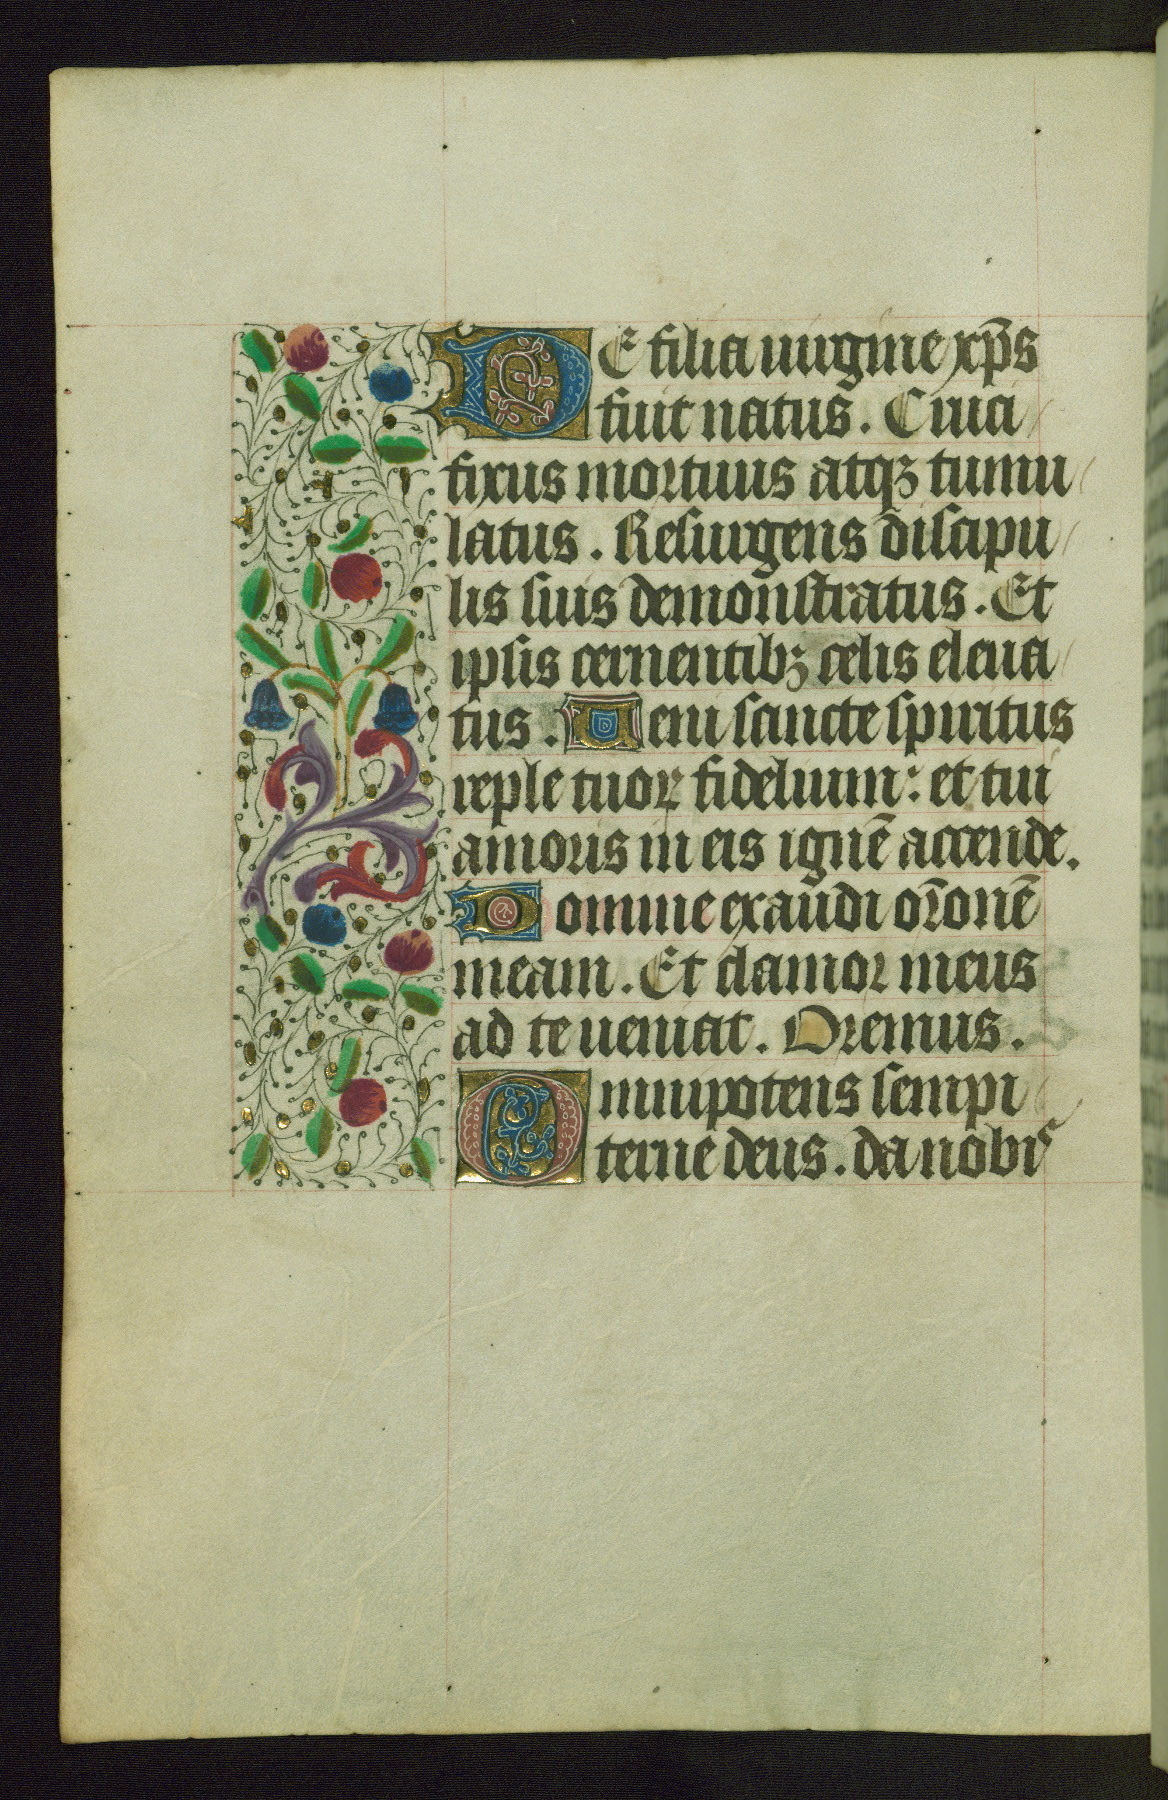 DE filia uirgine xp̄s
fuit natus. Cruci
fixus mortuus atqꝫ tumu
latus. Resurgens discipu
lis suis demonstratus. Et
ipsis cernentibꝫ celis eleua
tus. Ueni sancte spiritus
reple tuoꝝ fidelium: et tui
amoris in eis ignē accende.
Domine exaudi or̄onē
meam. Et clamor meus
ad te ueniat. Oremus.
Omnipotens sempi
terne deus. da nobis